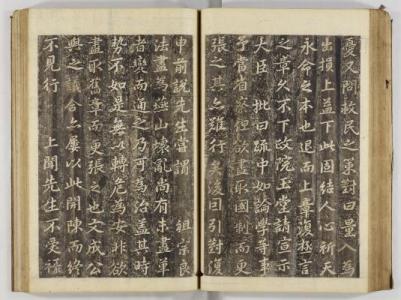 憂又問救民之策對曰量入為
出損上益下此固結人心祈天
永命之本也退而上章復極言
之章久不下政院玉堂請宣示
大臣 批曰疏中如論學等事
予當省察但欲盡取國制而更
張之其亦難行矣後日引對復
申前說先生嘗謂 祖宗良
法盡為燕山壞亂尚有未盡革
者變而通之乃可為治蓋其時
勢不如是無以轉危為安非欲
盡取舊章而更張之也文成公
與之議合亦屢以此開陳而終
不見行 上聞先生不受祿